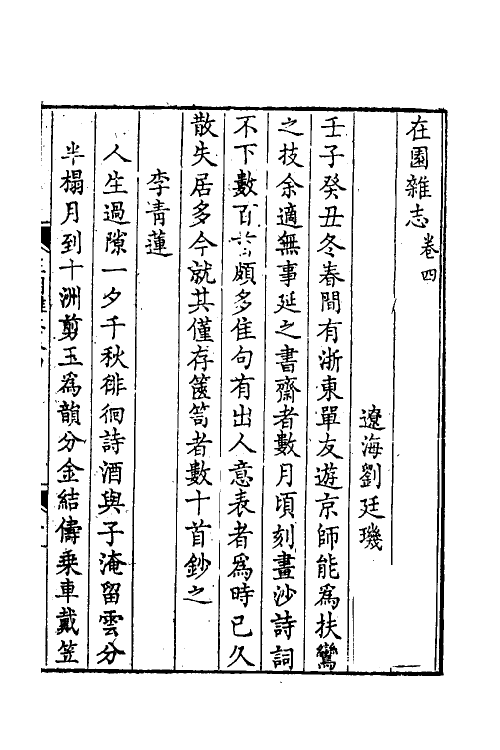 在園雜志 卷四
遼海劉廷璣
壬子癸丑冬春間有浙東單友遊京師能爲扶鸞
之技余適無事延之書齋者數月頃刻畫沙詩詞
不下數百首頗多佳句有出人意表者爲時已久
散失居多今就其僅存篋笥者數十首鈔之
李青蓮
人生過隙一夕千秋徘徊詩酒與子淹留雲分
半榻月到十洲剪玉爲韻分金結儔乗車戴笠